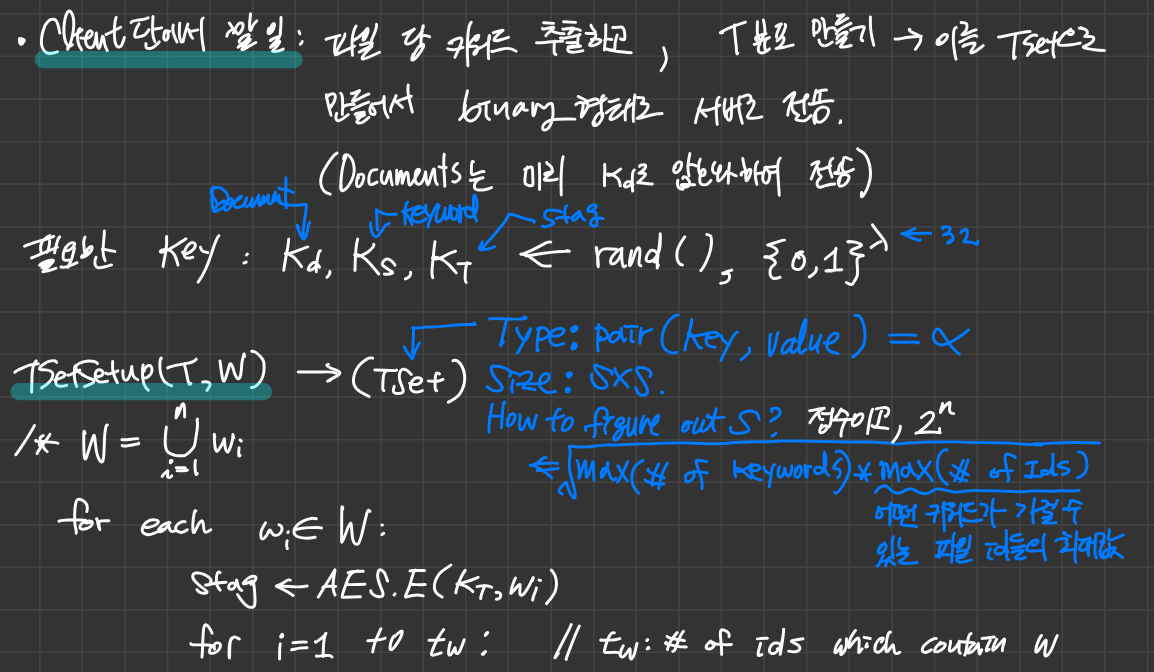 • Client단에서 할 일: 파일 당 키워드 추출하고, T 분포 만들기 → 이를 TSet으로
만들어서 binary 형태로 서버로 전송.
(Documents는 미리 Kd로 암호화하여 전송)
Document keyword stag
필요한 key: Kd, KS, KT ← rand(), {0,1}^λ ← 32
Type: pair(key, value) = α
TSetSetup(T, W) → (TSet) Size: S×S.
How to figure out S? 정수이고, 2^n
/* W = ⋃_{i=1}^{n} wi
← √max(# of keywords) * max(# of Ids)
어떤 키워드가 가질 수
있는 파일 id들의 최대값
for each wi ∈ W:
stag ← AES.E(KT, wi)
for i=1 to tw: // tw: # of ids which contain w